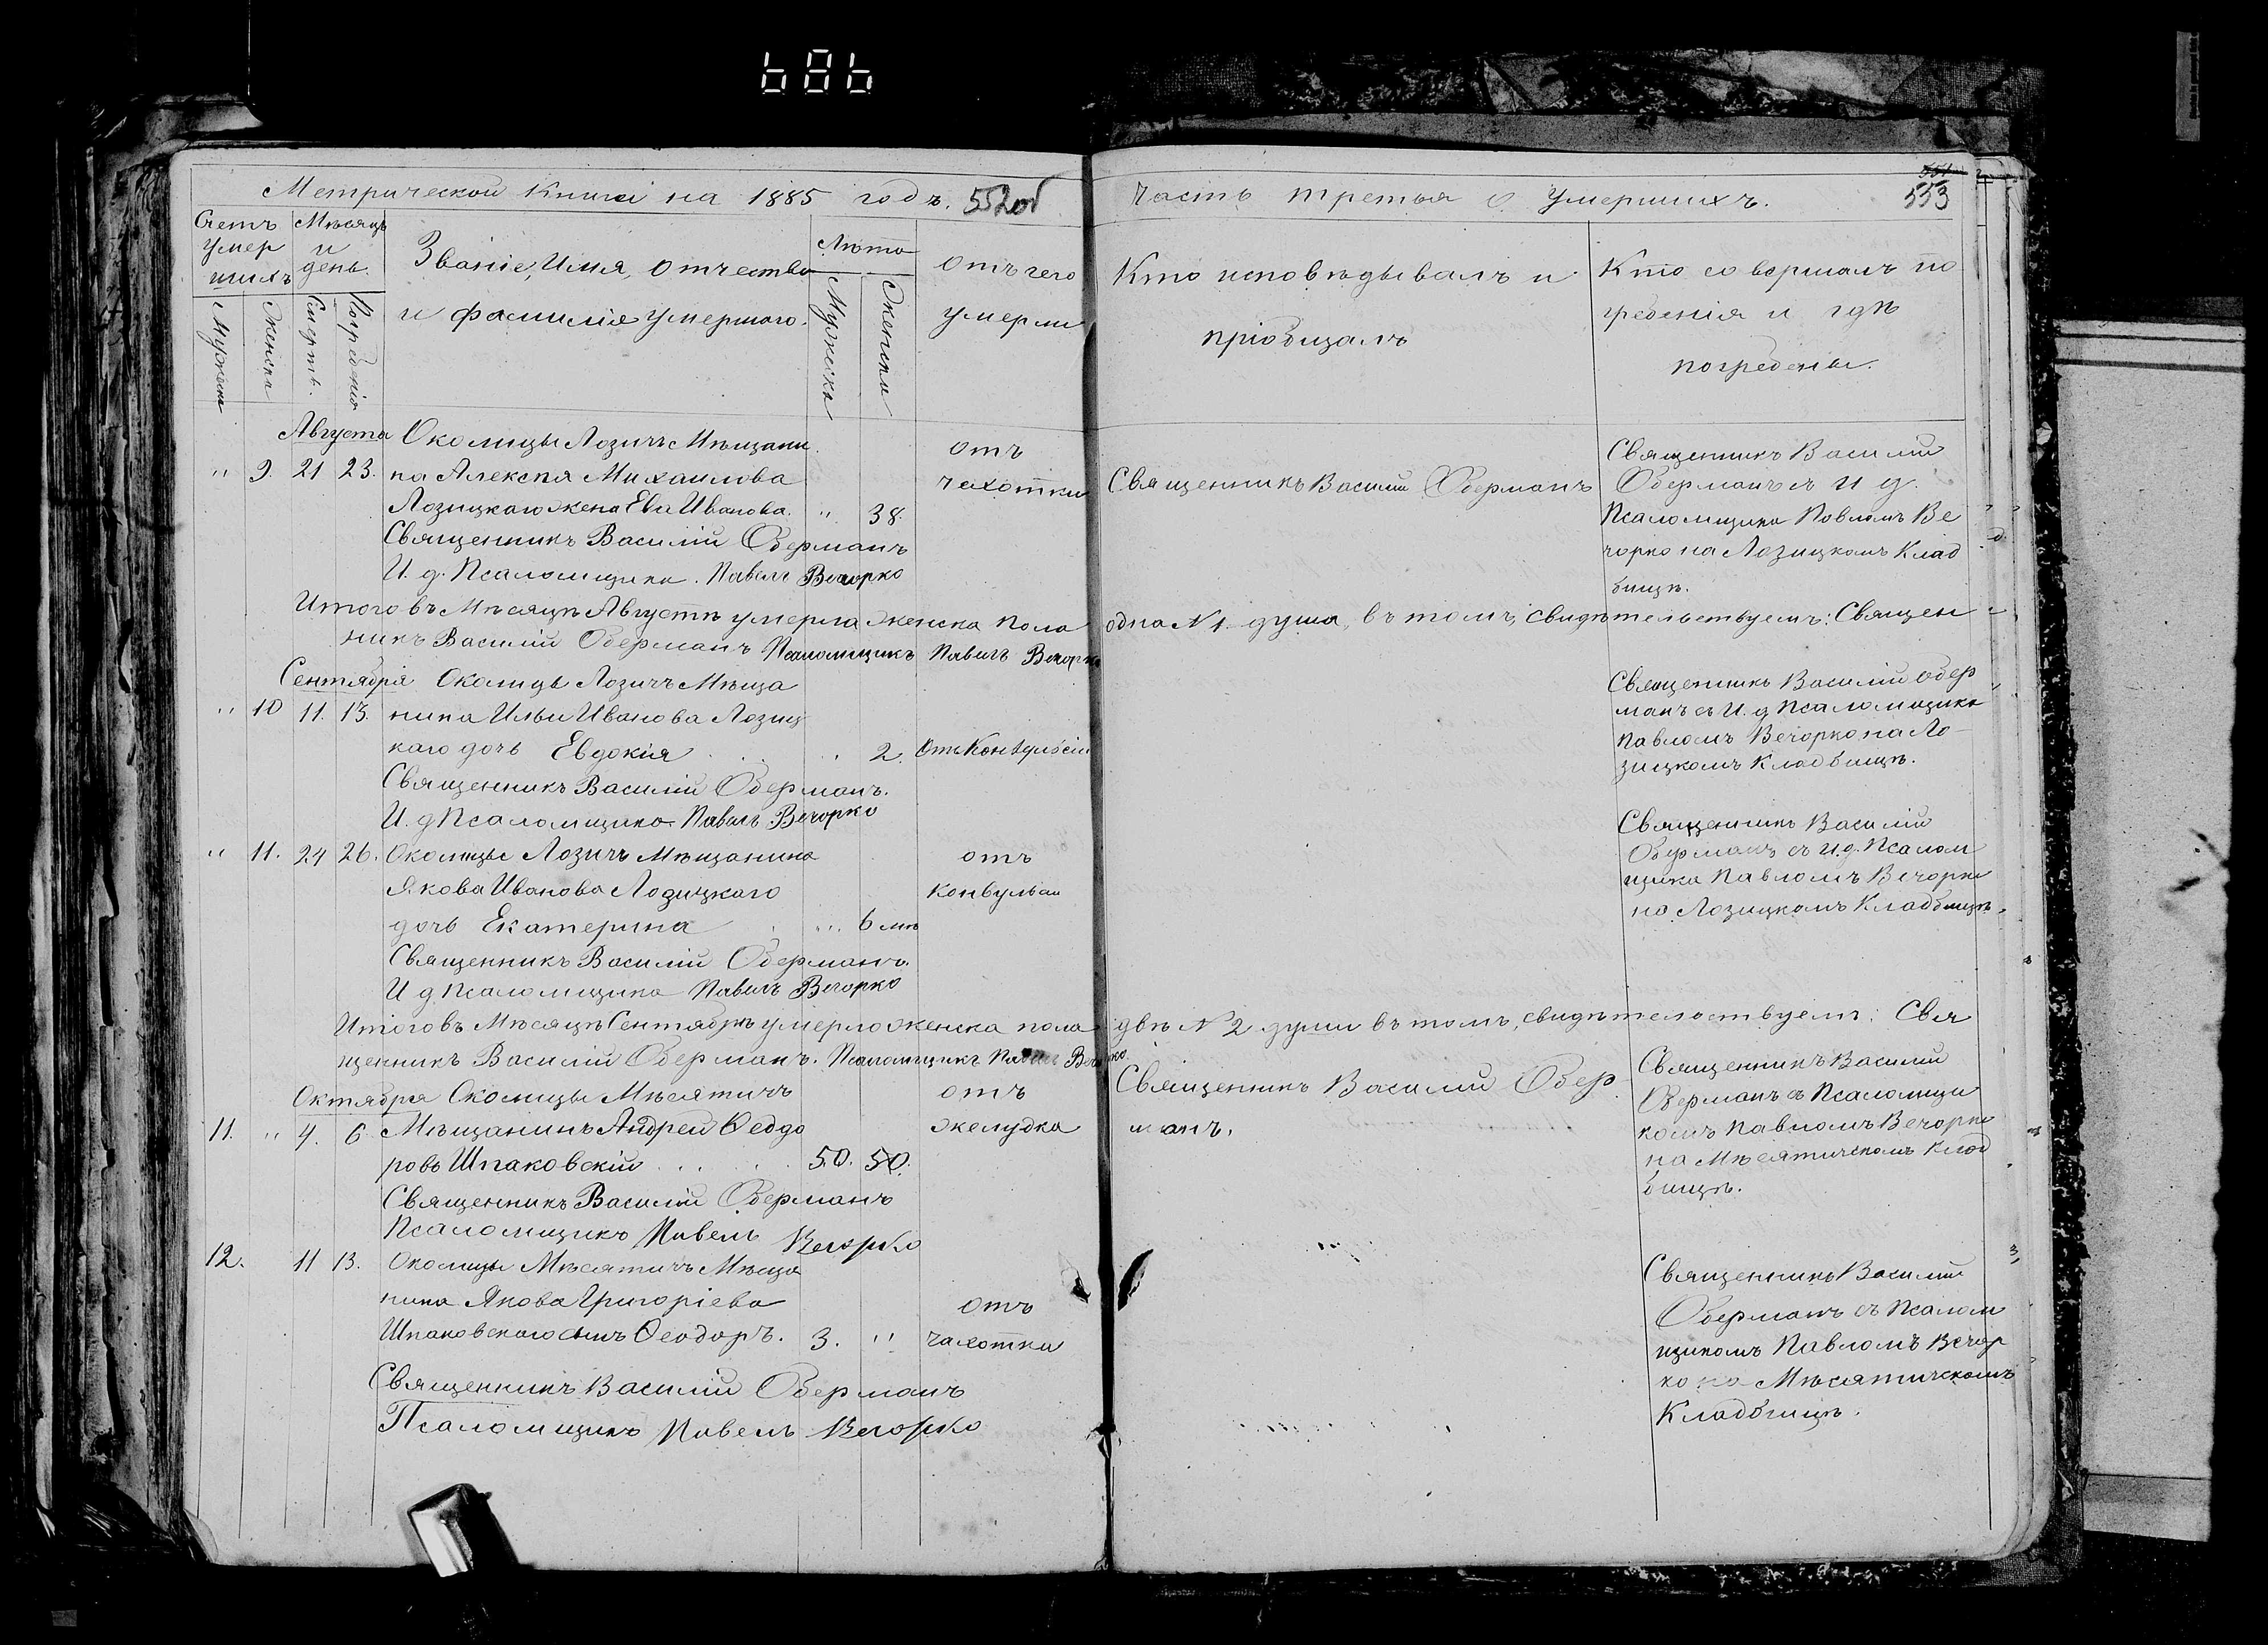 686
Метрической Книги на 1885 годъ. 552об
Счетъ умер шихъ
Мѣсяцъ и день
Званіе, Имя, отчество
и фамилія умершаго.
Лѣта
отъ чего
умерли
Мужеска
Женска
Смерти.
Погребенія
Мужеска
Женска
Августа Околицы Лозичъ Мѣщани
" 9. 21 23. на Алексѣя Михаилова
Лозицкаго жена Ева Иванова. " 38.
отъ
чахотки
Священникъ Василій Оберманъ
И. д. Псаломщика. Павелъ Вечорко
Итого въ Мѣсяцѣ Августѣ умерла женска пола
никъ Василій Оберманъ Псаломщикъ Павелъ Вечорко
Сентября Околицы Лозичъ Мѣща
" 10 11. 13. нина Ильи Иванова Лозиц
каго дочь Евдокія " 2. Отъ Конвульсіи
Священникъ Василій Оберманъ.
И. д Псаломщика Павелъ Вечорко
" 11. 24 26. Околицы Лозичъ Мѣщанина отъ
Якова Иванова Лозицкаго конвульсіи
дочь Екатерина " 6 мѣ
Священникъ Василій Оберманъ.
И д Псаломщика Павелъ Вечорко
Итого въ Мѣсяцѣ Сентябрѣ умерло женска пола
щенникъ Василій Оберманъ. Псаломщикъ Павелъ Вечорко
Октября Околицы Мѣсятичъ отъ
11. " 4. 6 Мѣщанинъ Андрей Ѳеодо желудка
ровъ Шпаковскій 50. 50.
Священникъ Василій Оберманъ
Псаломщикъ Павелъ Вечорко
12. 11 13. Околицы Мѣсятичъ Мѣща
нина Якова Григоріева отъ
Шпаковскаго сынъ Ѳеодоръ. 3. " чахотки
Священникъ Василій Оберманъ
Псаломщикъ Павелъ Вечорко
Часть третья о умершихъ.
551
553
Кто исповѣдывалъ и
пріобщалъ
Кто совершалъ по
гребенія и гдѣ
погребены.
Священникъ Василій Оберманъ
Священникъ Василій
Оберманъ съ И д.
Псаломщика Павломъ Ве
чорко на Лозицкомъ Клад
бищѣ.
одна № 1. душа, въ томъ, свидѣтельствуемъ: Священ
Священникъ Василій Обер
манъ съ И. д Псаломщика
Павломъ Вечорко на Ло-
зицкомъ Кладбищѣ.
Священникъ Василій
Оберманъ съ И. д. Псалом
щика Павломъ Вечорко
на Лозицкомъ Кладбищѣ.
двѣ № 2 души въ томъ, свидѣтельствуемъ: Свя
Священникъ Василій Обер
манъ.
Священникъ Василій
Оберманъ съ Псаломщи
комъ Павломъ Вечорко
на Мѣсятичскомъ Клад
бищѣ.
Священникъ Василій
Оберманъ съ Псалом
щикомъ Павломъ Вечор
ко на Мѣсятичскомъ
Кладбищѣ.